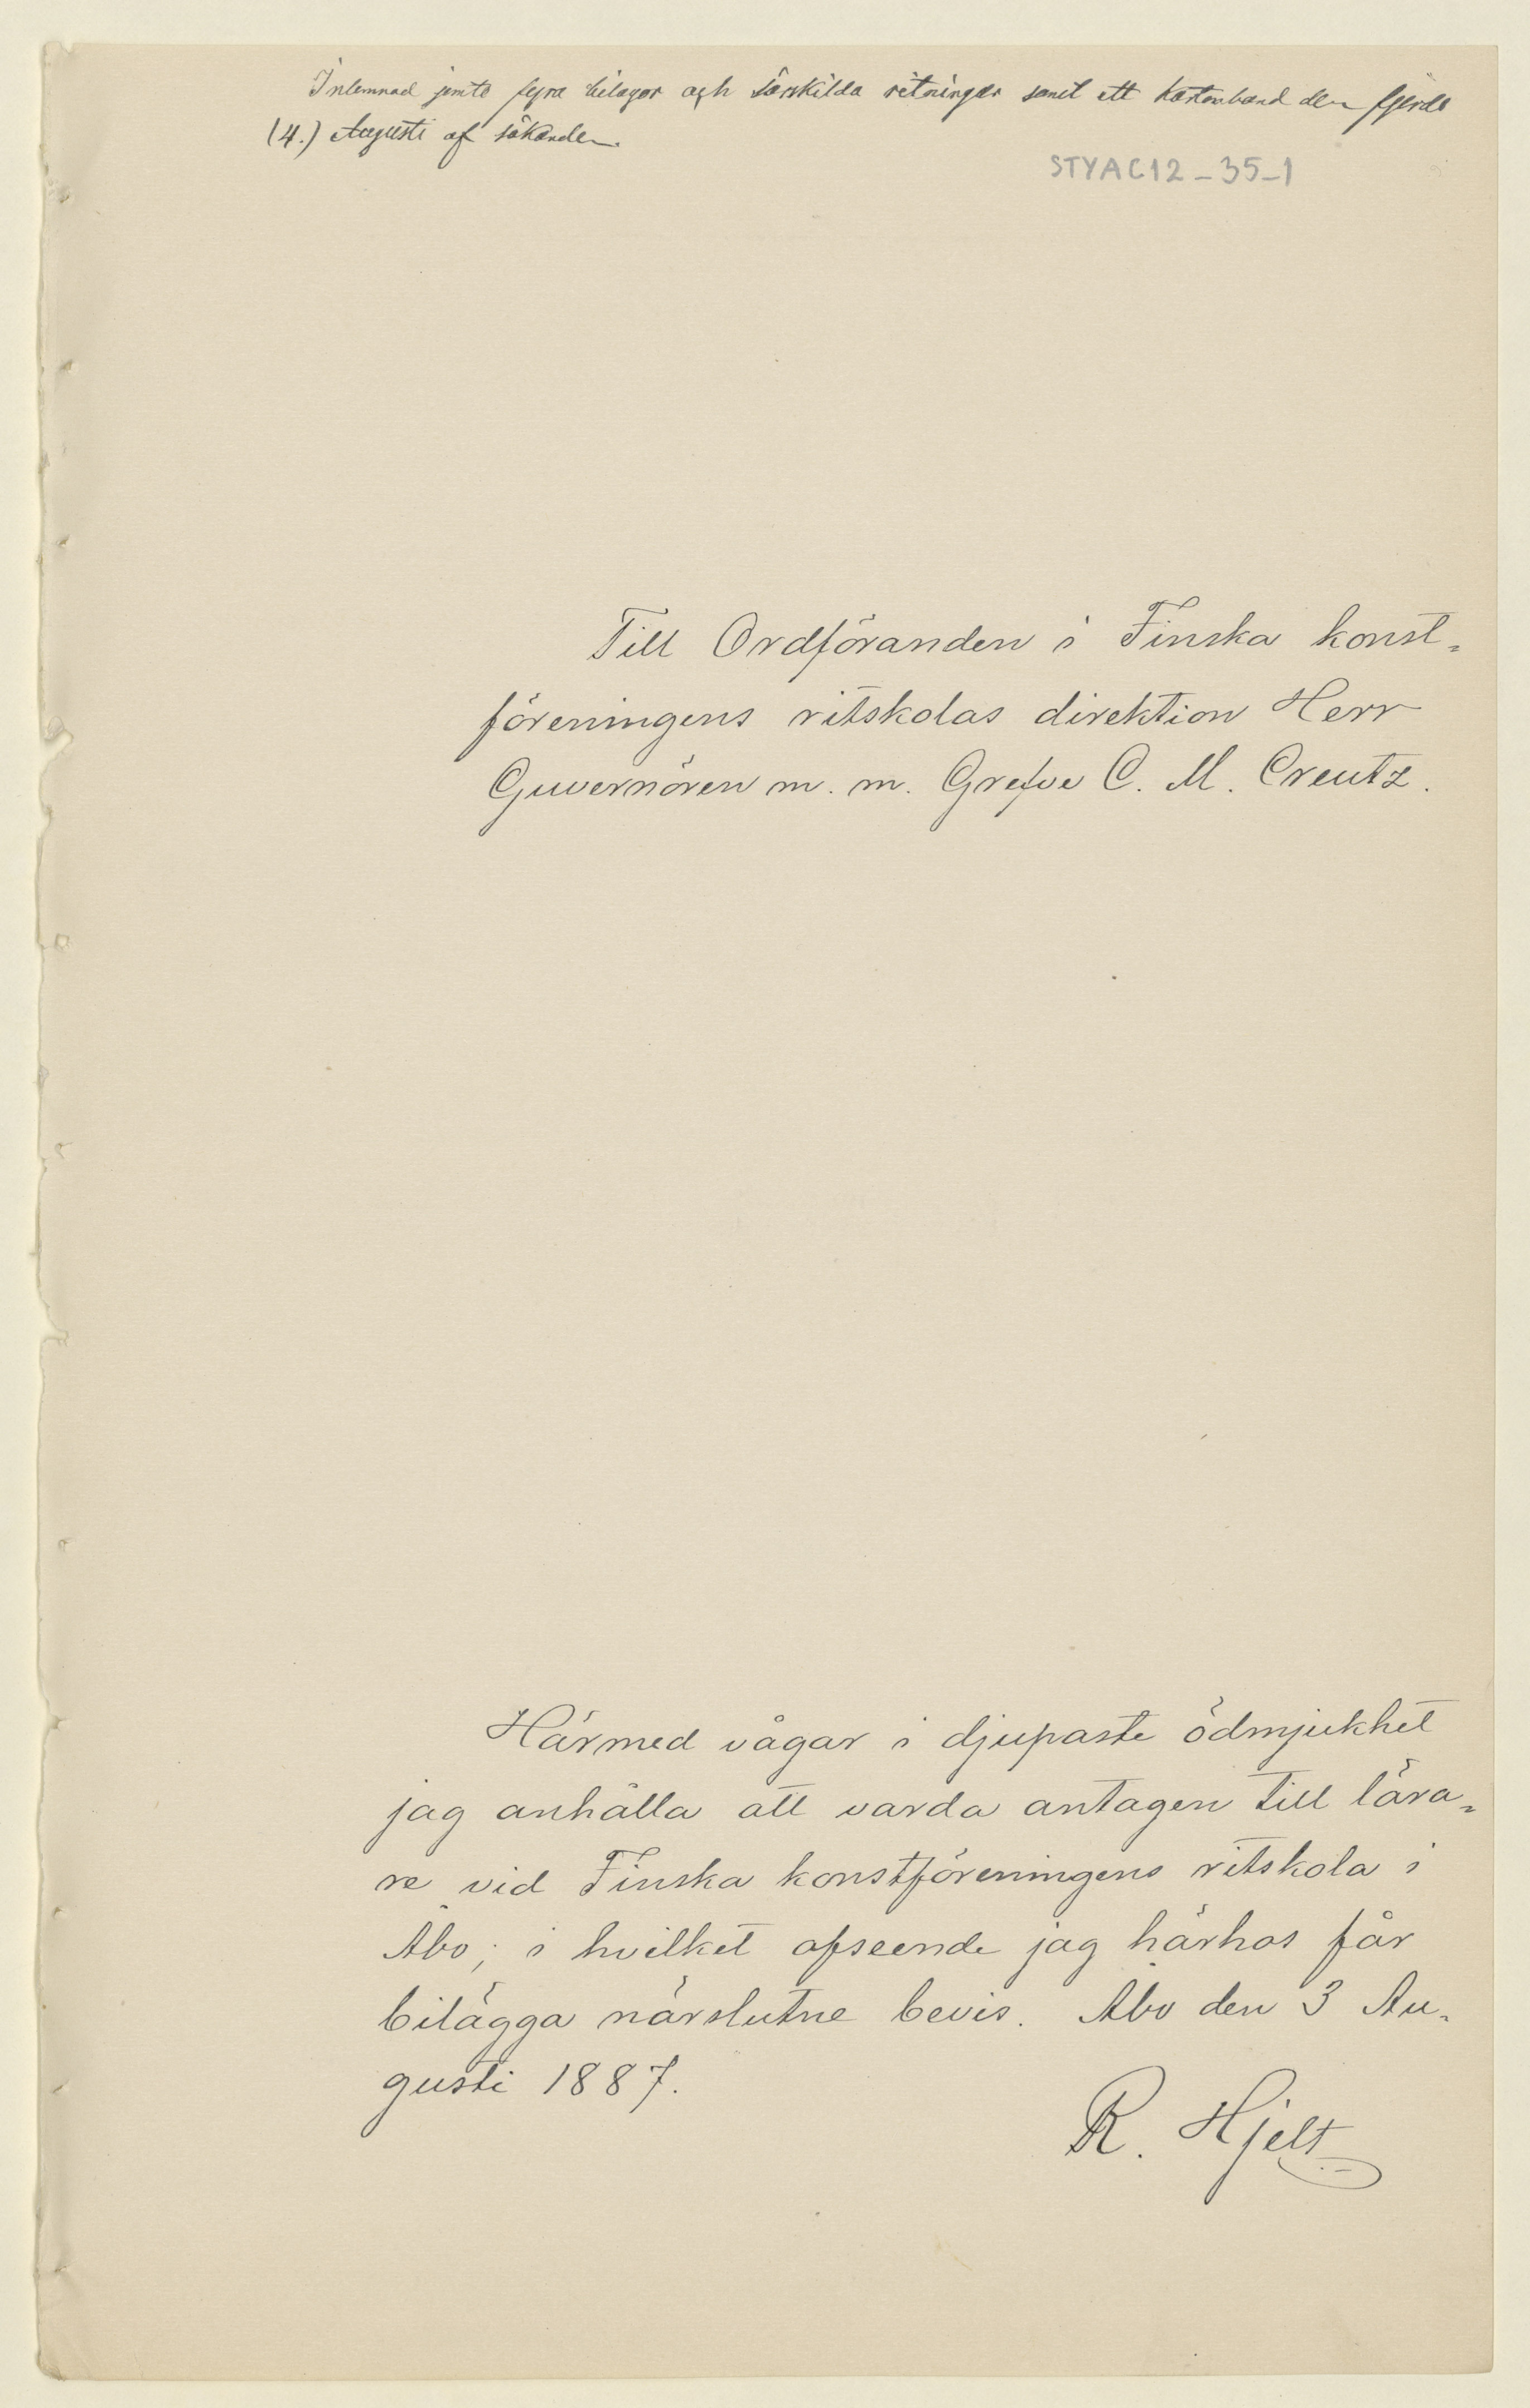 Inlemnad jemte fyra bilagor och särskilda ritningar samt ett kartonband den fjerde
(4.) Augusti af sökanden.
STYAC12_35_1
Till Ordföranden i Finska konst=
föreningens ritskolas direktion Herr
Guvernören m. m. Grefve C. M. Creutz.
Härmed vågar i djupaste ödmjukhet
jag anhålla att varda antagen till lära=
re vid Finska konstföreningens ritskola i
Åbo; i hvilket afseende jag härhos får
bilägga närslutne bevis. Åbo den 3 Au=
gusti 1887.
R. Hjelt